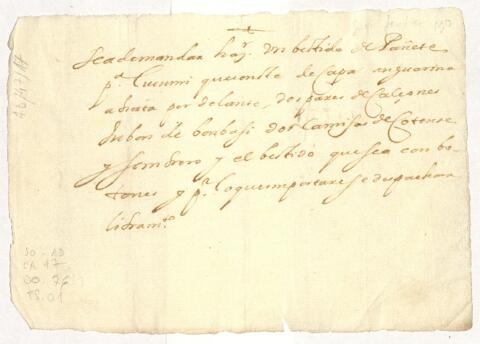 Se a de mandar haçr. Un bestido de Pañete
pa. Cucumi que conste de Capa anguarina
abierta por delante, dos pares de Calçones
Jubon de bonbasi dos Camisas de Cotense
y Sombrero y el bestido que sea con bo-
tones y pa. lo que importare se despachara
libramto.
SO - AD
CA 17
DO. 76
FS. 01